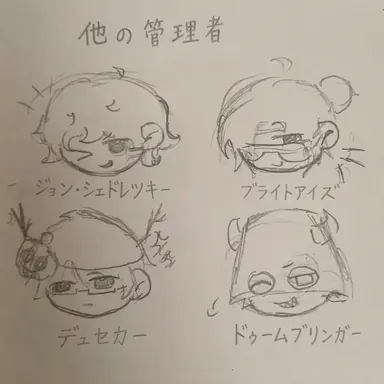 他の管理者
ジョン・シェドレツキー
ブライトアイズ
デュセカー
ドゥームブリンガー